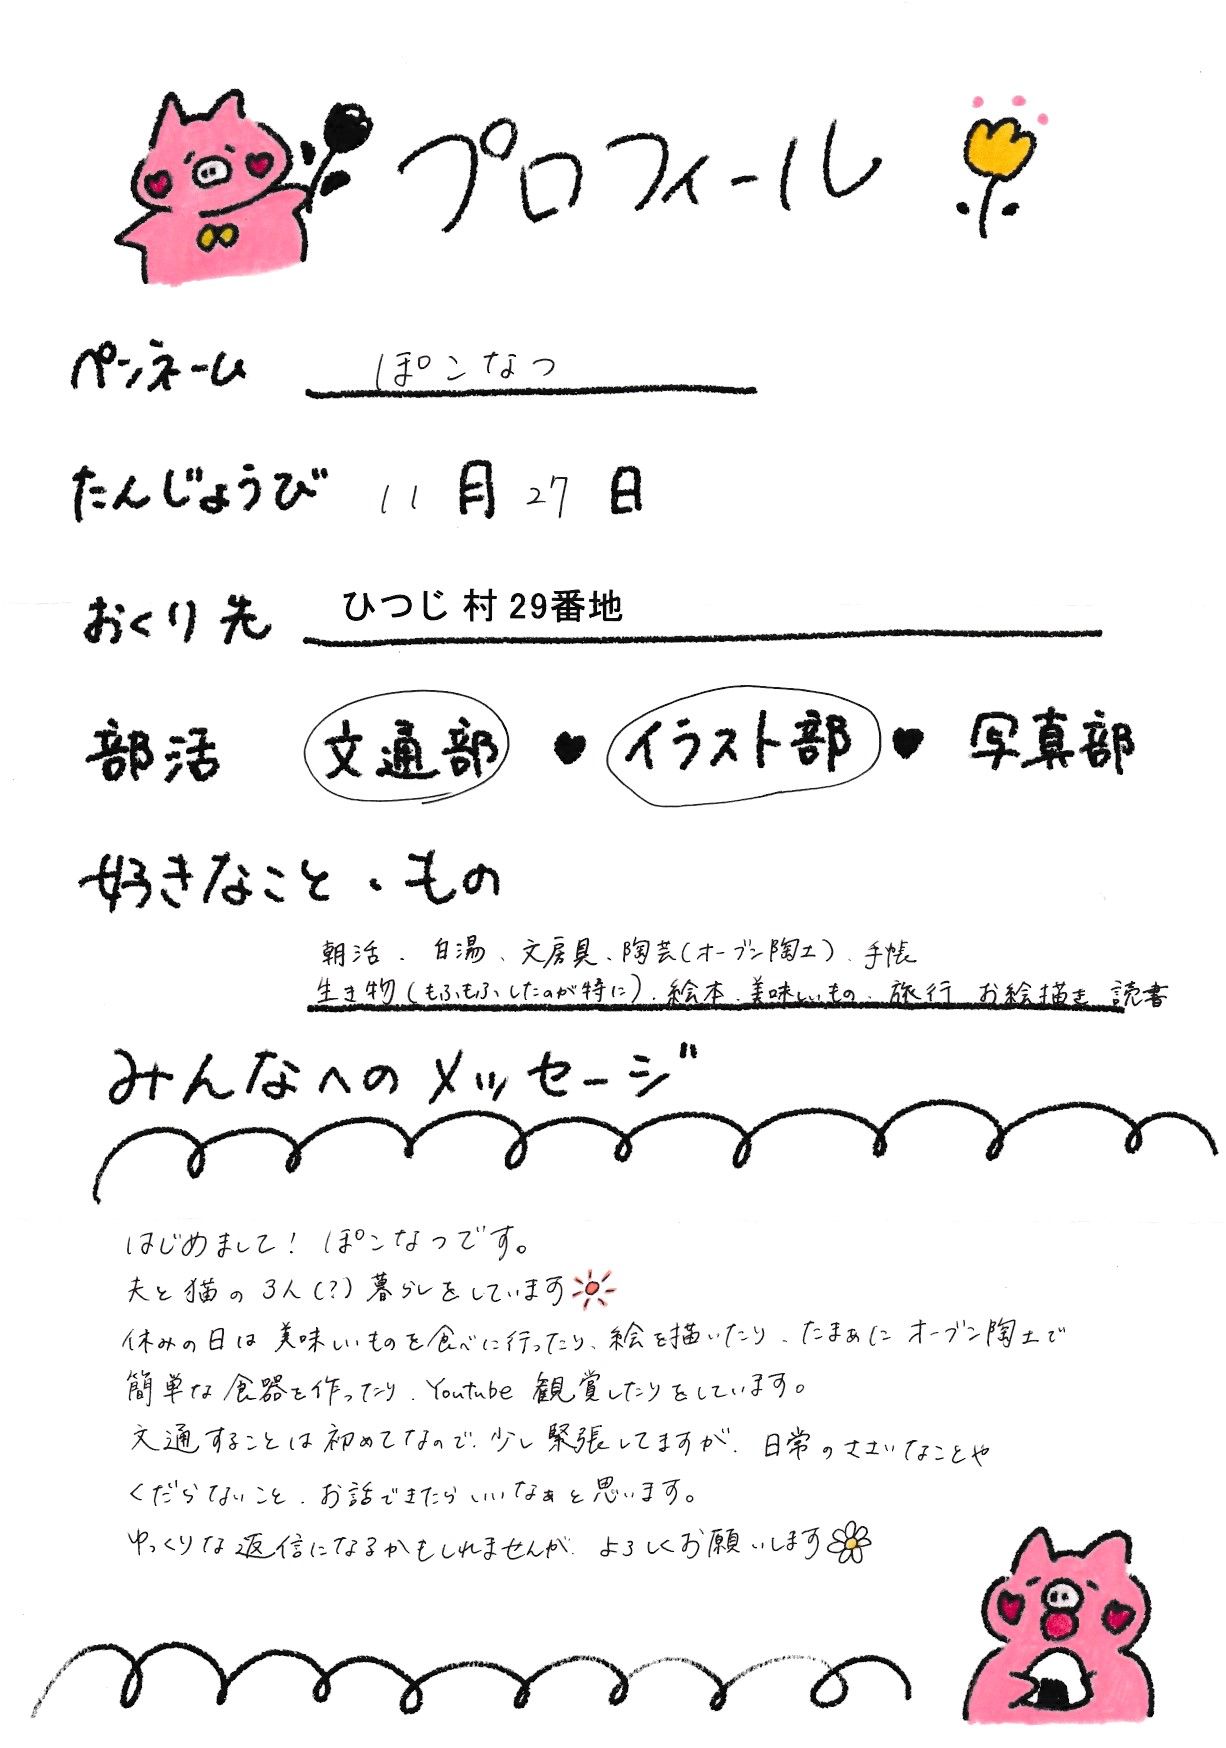 プロフィール
ペンネーム ぽこなつ
たんじょうび 11月27日
おくり先 ひつじ村29番地
部活 文通部 ♥ イラスト部 ♥ 写真部
好きなこと・もの
朝活、白湯、文房具、陶芸(オーブン陶土)、手帳
生き物(もふもふしたのが特に)、絵本、美味しいもの、旅行 お絵描き 読書
みんなへのメッセージ
はじめまして! ぽこなつです。
夫と猫の3人(?)暮らしをしています
休みの日は美味しいものを食べに行ったり、絵を描いたり、たまぁに オーブン陶土で
簡単な食器を作ったり、Youtube 観賞したりをしています。
文通することは初めてなので、少し緊張してますが、日常のささいなことや
くだらないこと、お話できたらいいなぁと思います。
ゆっくりな返信になるかもしれませんが、よろしくお願いします